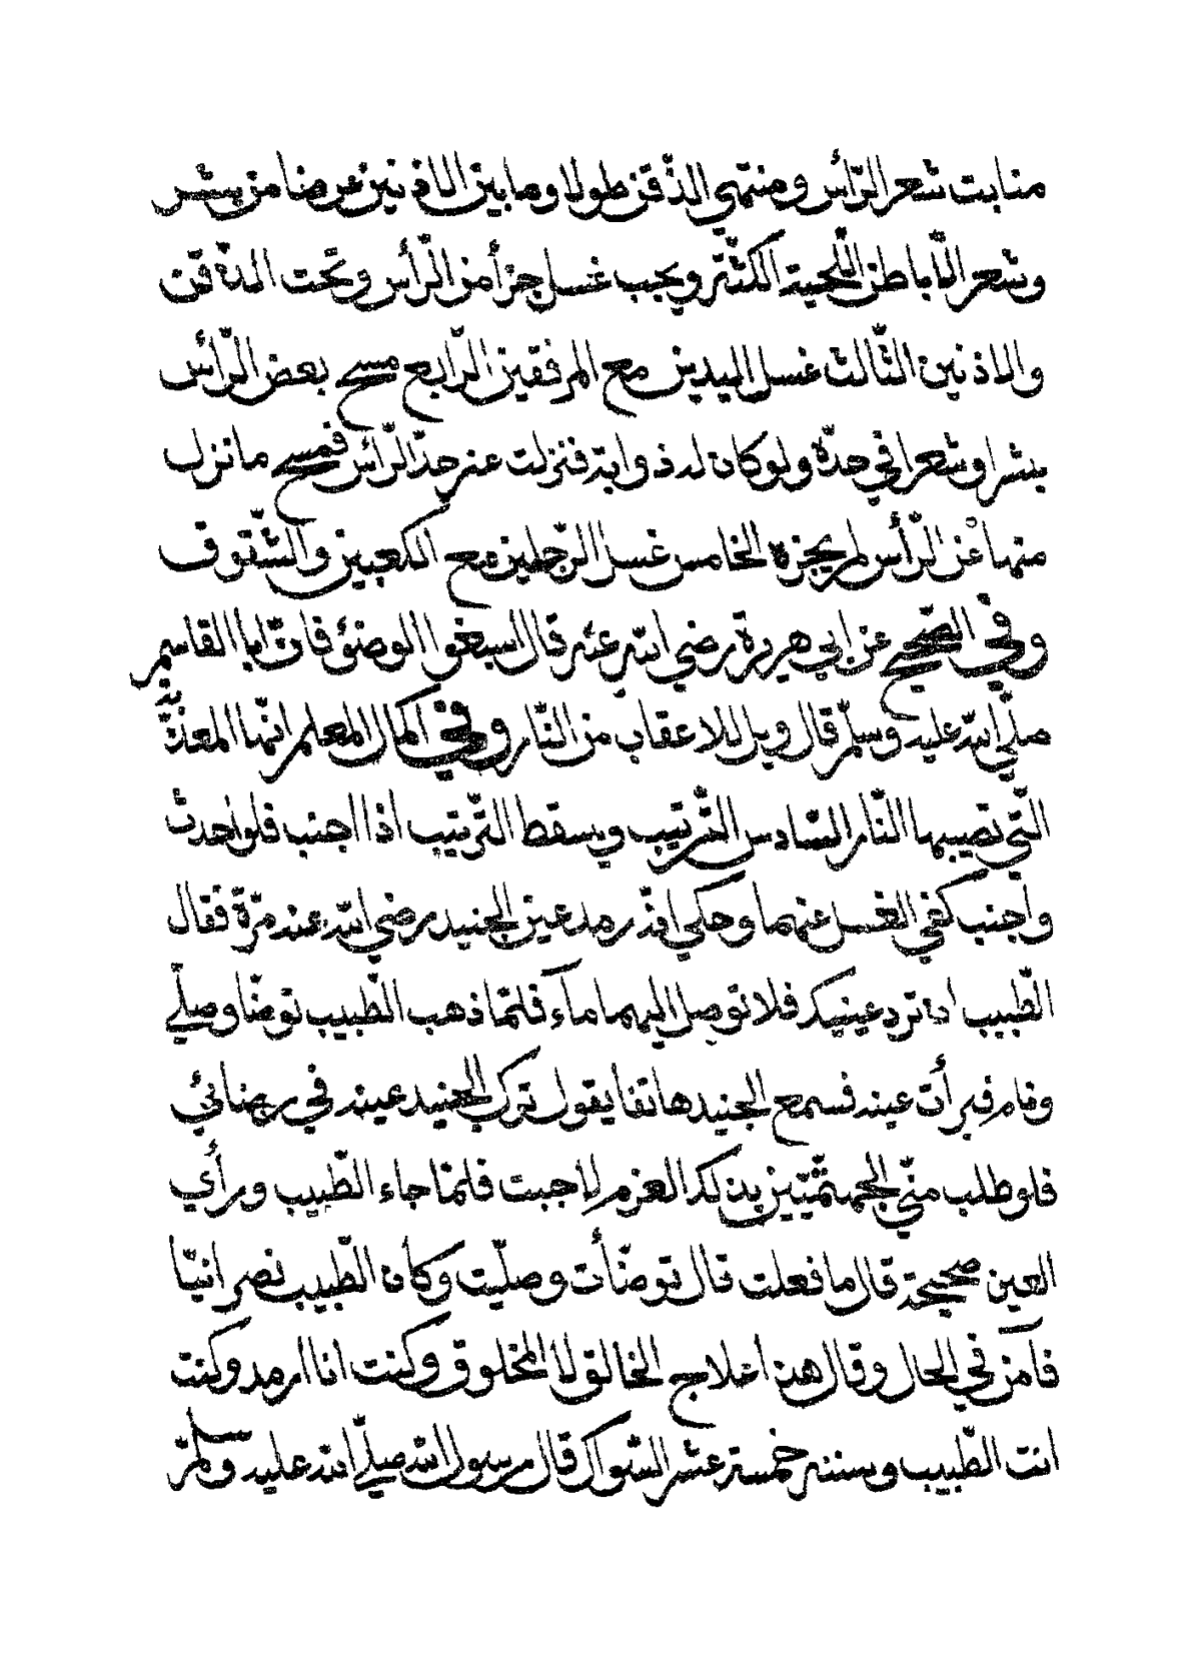 منابت شعر الرّأس ومنتهي الذّقن طولا وما بين الاذنين عرضا من بشر
وشعر الّا باطن اللّحية الكثّة ويجب غسل جزأ من الرّأس وتحت الذّقن
والاذنين الثّالث غسل اليدين مع المرفقين الرّابع مسح بعض الرّأس
بشرا وشعرا في حدّه ولو كان له ذوابة فنزلت عن حدّ الرّأس فمسح ما نزل
منها عن الرّأس لم يجزه الخامس غسل الرّجلين مع الكعبين والشّقوق
وفي الصّحيح عن ابي هريرة رضي الله عنه قال اسبغوا الوضؤ فانّ ابا القاسم
صلّي الله عليه وسلّم قال ويل للاعقاب من النّار وفي اكمال المعلم انّما المعذّبة
الّتي تصيبها النّار السّادس التّرتيب ويسقط التّرتيب اذا اجنب فلو احدث
واجنب كفي الغسل عنهما وحكي انّه رمد عين الجنيد رضي الله عنه مرّة فقال
الطّبيب ان ترد عينيك فلا توصل اليهما مآء فلمّا ذهب الطّبيب توضّا وصلّي
ونام فبرأت عينه فسمع الجنيد هاتفا يقول ترك الجنيد عينه في رضائي
فلو طلب منّي الجهنّميّين بذلك العزم لاجبت فلمّا جاء الطّبيب ورأي
العين صحيحة قال ما فعلت قال توضّأت وصلّيت وكان الطّبيب نصرانيّا
فآمن في الحال وقال هذا علاج الخالق لا المخلوق وكنت انا ارمد وكنت
انت الطّبيب وسننه خمسة عشر السّواك قال رسول الله صلّي الله عليه وسلّم